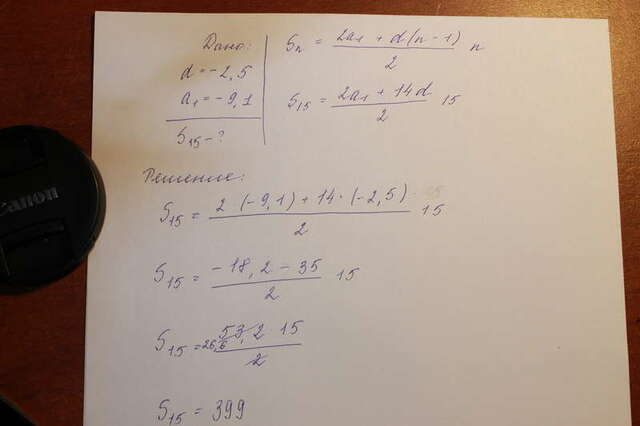 Дано:
d = -2,5
a₁ = -9,1
S₁₅ - ?
Sₙ = 2a₁ + d(n-1) / 2 n
S₁₅ = 2a₁ + 14d / 2 15
Решение:
S₁₅ = 2 (-9,1) + 14 · (-2,5) / 2 15
S₁₅ = -18,2 - 35 / 2 15
S₁₅ = 26,6 53,2 15 / 2
S₁₅ = 399
Canon